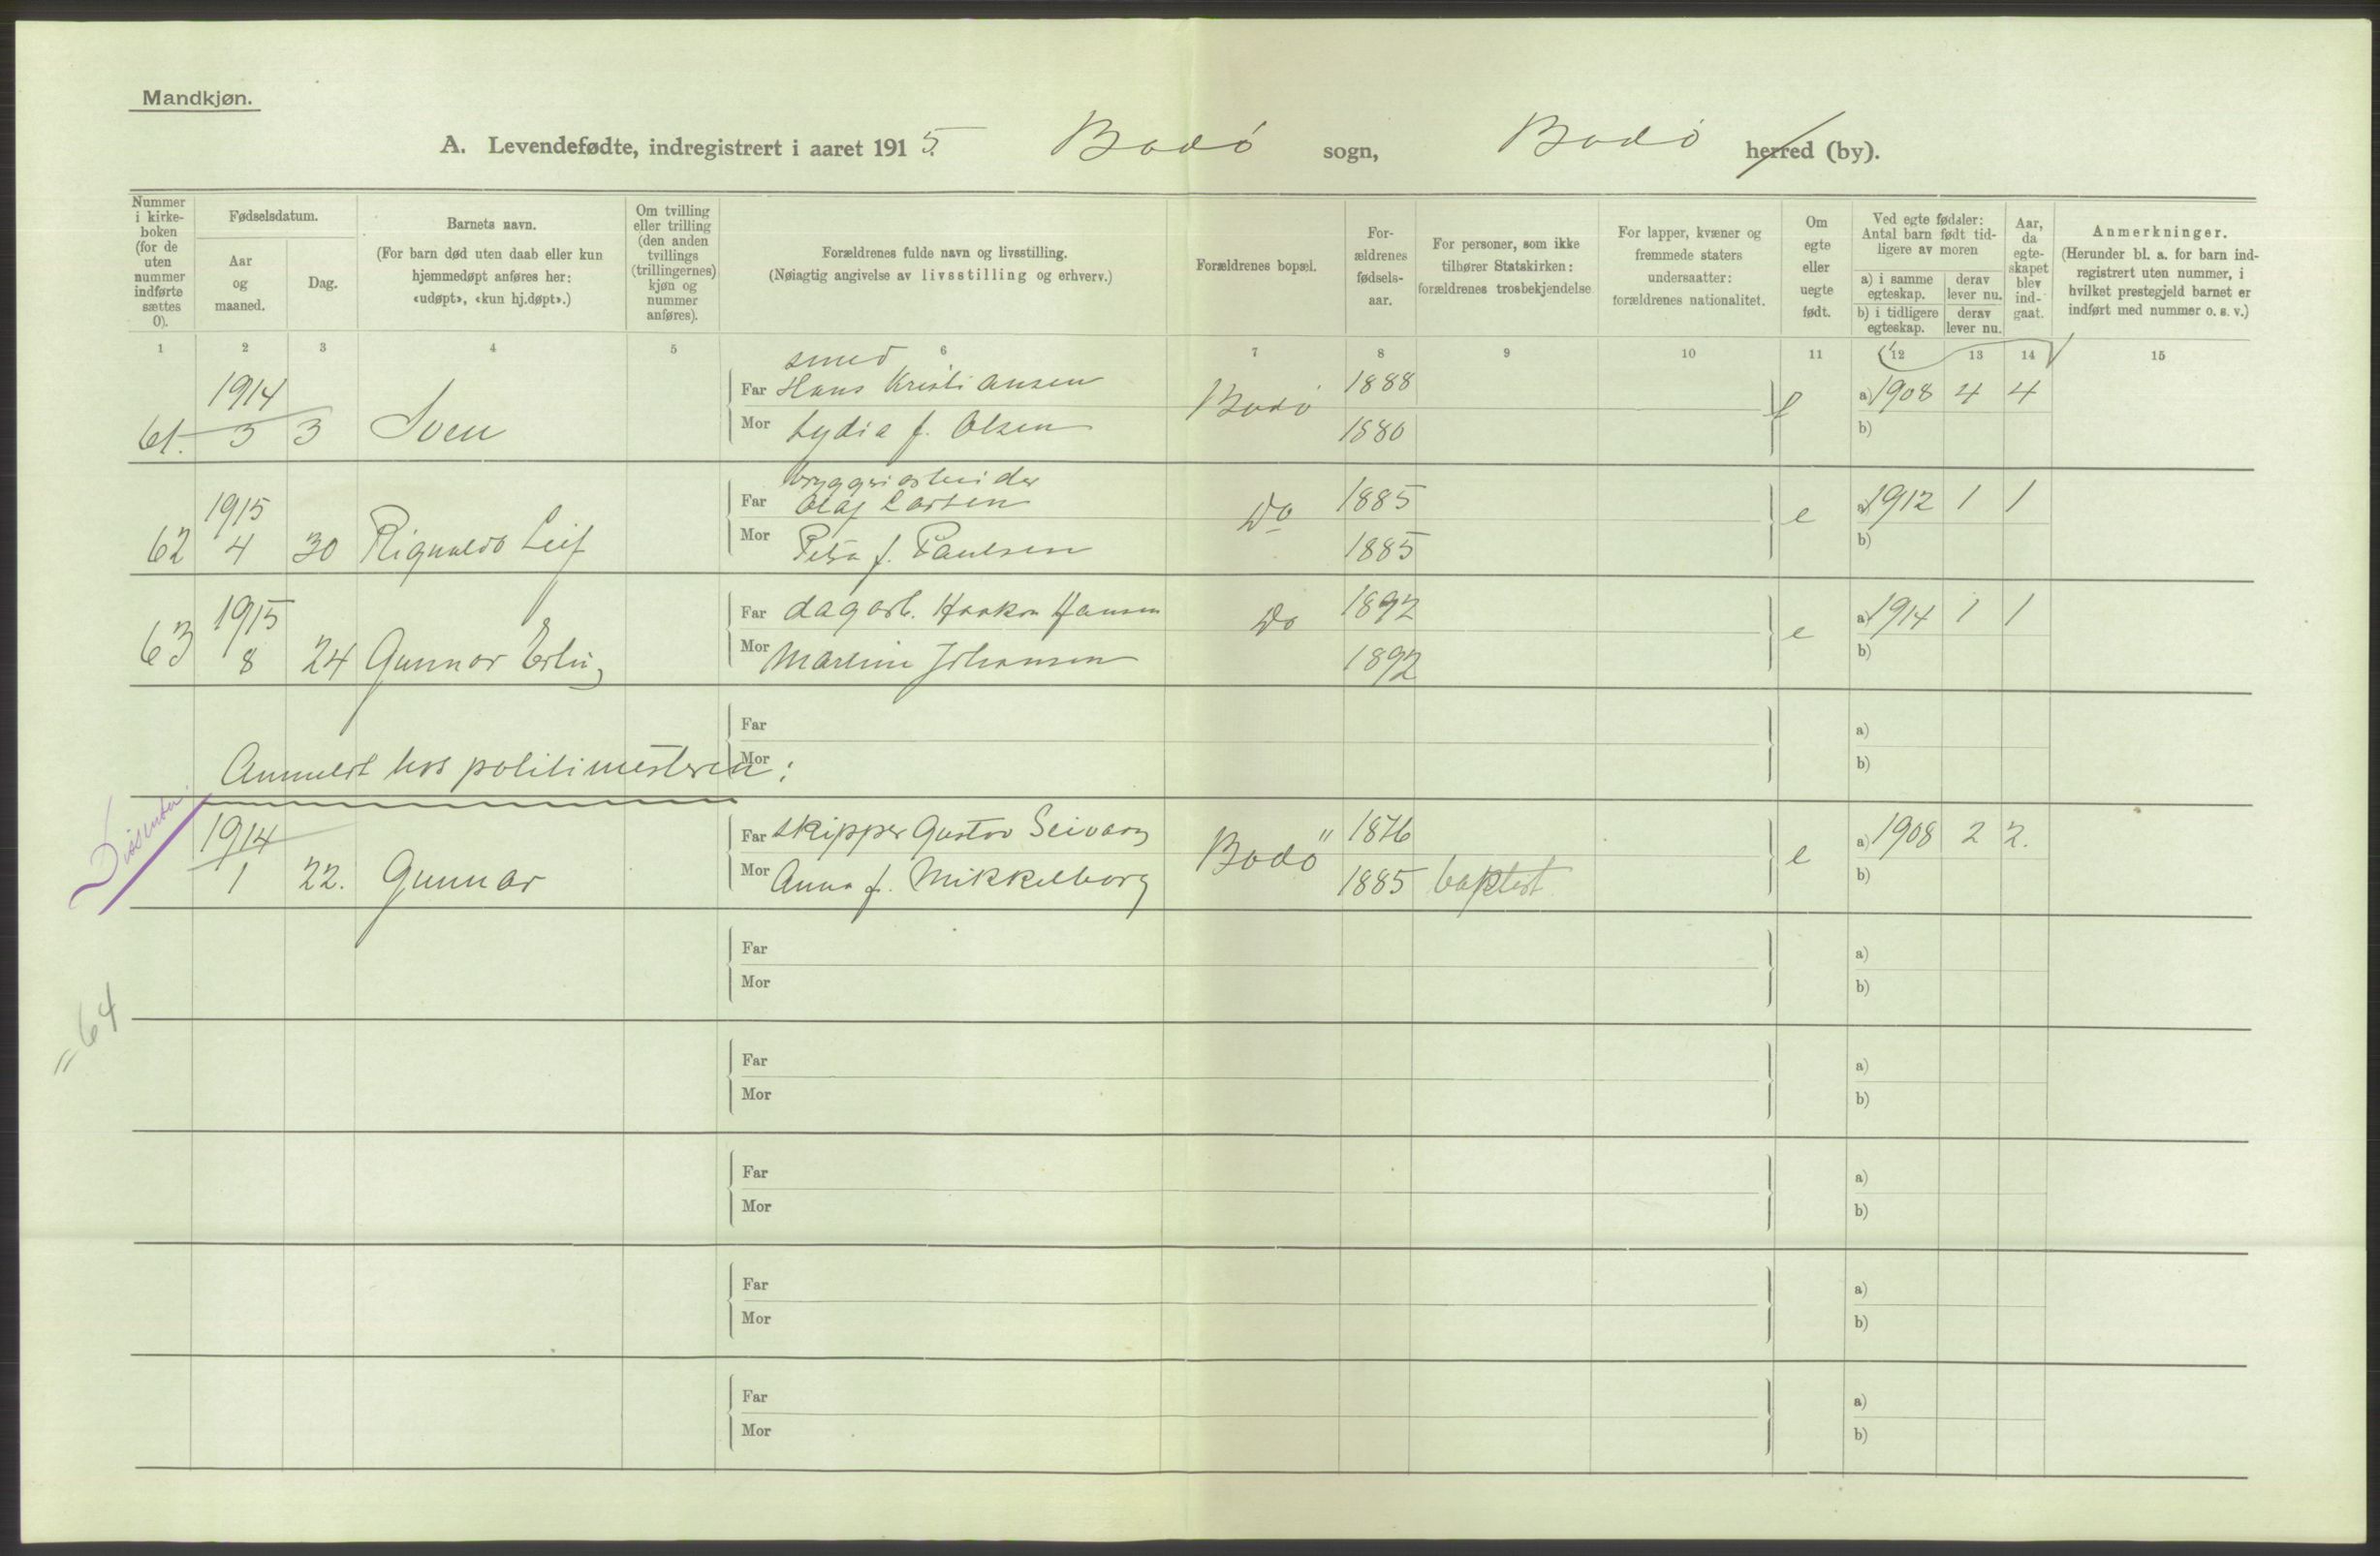 Mandkjøn.
A. Levendefødte, indregistrert i aaret 1915. Bodø sogn, Bodø herred (by).
Nummer i kirke-boken (for de uten nummer indførte sættes 0).
Fødselsdatum.
Aar og maaned.
Dag.
Barnets navn.
(For barn død uten daab eller kun hjemmedøpt anføres her: «udøpt», «kun hj.døpt».)
Om tvilling eller trilling (den anden tvillings (trillingernes) kjøn og nummer anføres).
Forældrenes fulde navn og livsstilling.
(Nøiagtig angivelse av livsstilling og erhverv.)
Forældrenes bopæl.
For-ældrenes fødsels-aar.
For personer, som ikke tilhører Statskirken: forældrenes trosbekjendelse
For lapper, kvæner og fremmede staters undersaatter: forældrenes nationalitet.
Om egte eller uegte født.
Ved egte fødsler: Antal barn født tid-ligere av moren
a) i samme egteskap.
derav lever nu.
b) i tidligere egteskap.
derav lever nu.
Aar, da egte-skapet blev ind-gaat.
Anmerkninger.
(Herunder bl. a. for barn ind-registrert uten nummer, i hvilket prestegjeld barnet er indført med nummer o. s. v.)
1 2 3 4 5 6 7 8 9 10 11 12 13 14 15
smed
1914 Far Hans Kristiansen 1888 a) 1908 4 4
61. 3 3 Sven Mor Lydia f. Olsen Bodø 1880 b)
bryggeriarbeider
1915 Far Olaf Larsen Do 1885 e a) 1912 1 1
62 4 30 Rignald Leif Mor Petra f. Paulsen 1885 b)
1915 Far dagarb. Haakon Hansen Do 1892 e a) 1914 1 1
63 8 24 Gunnar Erling Mor Johansen 1892 b)
Far a)
Anmeldt hos politimesteren: Mor b)
Dissenter.
1914 Far skipper Gustav Bodø 1876 e a) 1908 2 2.
1 22. Gunnar Mor Anna f. Mikkelborg 1885 baptist b)
Far a)
Mor b)
= 64
Far a)
Mor b)
Far a)
Mor b)
Far a)
Mor b)
Far a)
Mor b)